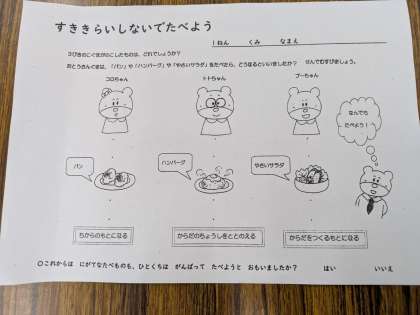 すききらいしないでたべよう
1ねん くみ なまえ
3びきのこぐまがのこしたものは、どれでしょうか?
おとうさんぐまは、「パン」や「ハンバーグ」や「やさいサラダ」をたべたら、どうなるといいましたか? せんでむすびましょう。
コロちゃん トトちゃん プーちゃん
なんでも
たべよう!
パン ハンバーグ やさいサラダ
ちからのもとになる からだのちょうしをととのえる からだをつくるもとになる
○これからは にがてなたべものも、ひとくちは がんばって たべようと おもいましたか? はい いいえ